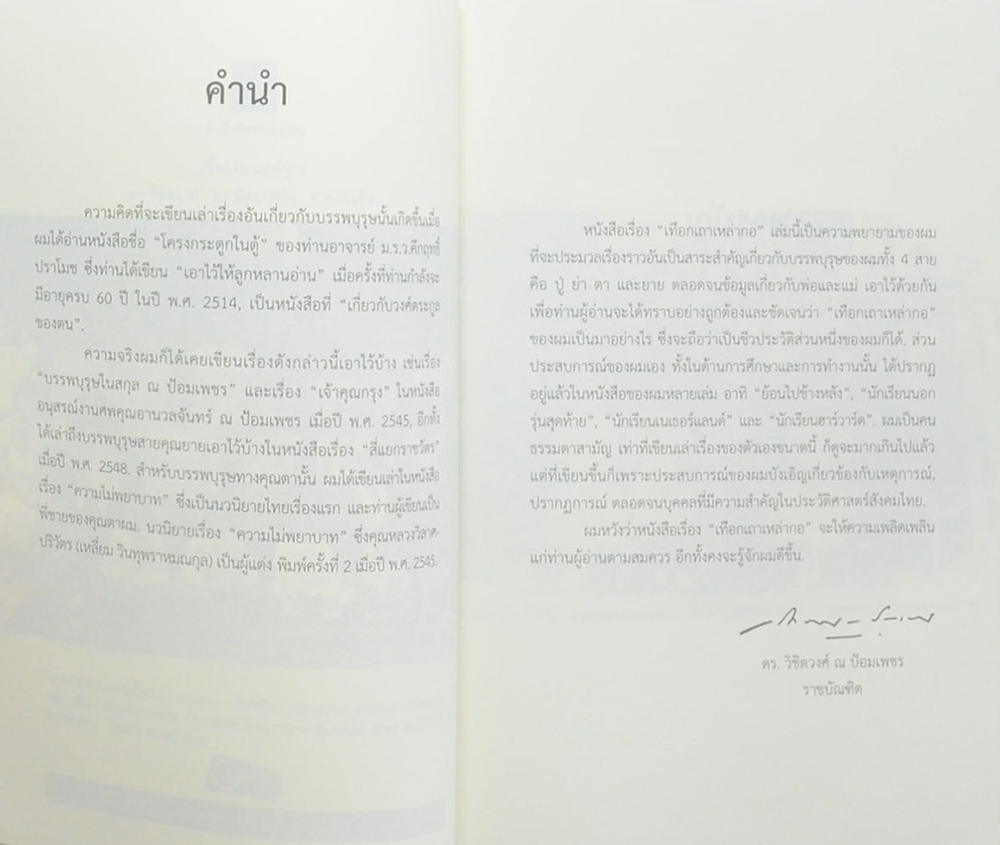 คำนำ
ความคิดที่จะเขียนเล่าเรื่องอันเกี่ยวกับบรรพบุรุษนั้นเกิดขึ้นเมื่อ
ผมได้อ่านหนังสือชื่อ “โครงกระดูกในตู้” ของท่านอาจารย์ ม.ร.ว.คึกฤทธิ์
ปราโมช ซึ่งท่านได้เขียน “เอาไว้ให้ลูกหลานอ่าน” เมื่อครั้งที่ท่านกำลังจะ
มีอายุครบ 60 ปี ในปี พ.ศ. 2514, เป็นหนังสือที่ “เกี่ยวกับวงศ์ตระกูล
ของตน”.
ความจริงผมก็ได้เคยเขียนเรื่องดังกล่าวนี้เอาไว้บ้าง เช่นเรื่อง
“บรรพบุรุษในสกุล ณ ป้อมเพชร” และเรื่อง “เจ้าคุณกรุง” ในหนังสือ
อนุสรณ์งานศพคุณอานวลจันทร์ ณ ป้อมเพชร เมื่อปี พ.ศ. 2545, อีกทั้ง
ได้เล่าถึงบรรพบุรุษสายคุณยายเอาไว้บ้างในหนังสือเรื่อง “สี่แยกราชวัตร”
เมื่อปี พ.ศ. 2548. สำหรับบรรพบุรุษทางคุณตานั้น ผมได้เขียนเล่าในหนังสือ
เรื่อง “ความไม่พยาบาท” ซึ่งเป็นนวนิยายไทยเรื่องแรก และท่านผู้เขียนเป็น
พี่ชายของคุณตาผม. นวนิยายเรื่อง “ความไม่พยาบาท” ซึ่งคุณหลวงวิลาศ-
ปริวัตร (เหลี่ยม วินทุพราหมณกุล) เป็นผู้แต่ง พิมพ์ครั้งที่ 2 เมื่อปี พ.ศ. 2545.
หนังสือเรื่อง “เทือกเถาเหล่ากอ” เล่มนี้เป็นความพยายามของผม
ที่จะประมวลเรื่องราวอันเป็นสาระสำคัญเกี่ยวกับบรรพบุรุษของผมทั้ง 4 สาย
คือ ปู่ ย่า ตา และยาย ตลอดจนข้อมูลเกี่ยวกับพ่อและแม่ เอาไว้ด้วยกัน
เพื่อท่านผู้อ่านจะได้ทราบอย่างถูกต้องและชัดเจนว่า “เทือกเถาเหล่ากอ”
ของผมเป็นมาอย่างไร ซึ่งจะถือว่าเป็นชีวประวัติส่วนหนึ่งของผมก็ได้. ส่วน
ประสบการณ์ของผมเอง ทั้งในด้านการศึกษาและการทำงานนั้น ได้ปรากฏ
อยู่แล้วในหนังสือของผมหลายเล่ม อาทิ “ย้อนไปข้างหลัง”, “นักเรียนนอก
รุ่นสุดท้าย”, “นักเรียนเนเธอร์แลนด์” และ “นักเรียนฮาร์วาร์ด”. ผมเป็นคน
ธรรมดาสามัญ เท่าที่เขียนเล่าเรื่องของตัวเองขนาดนี้ ก็ดูจะมากเกินไปแล้ว
แต่ที่เขียนขึ้นก็เพราะประสบการณ์ของผมบังเอิญเกี่ยวข้องกับเหตุการณ์,
ปรากฏการณ์ ตลอดจนบุคคลที่มีความสำคัญในประวัติศาสตร์สังคมไทย.
ผมหวังว่าหนังสือเรื่อง “เทือกเถาเหล่ากอ” จะให้ความเพลิดเพลิน
แก่ท่านผู้อ่านตามสมควร อีกทั้งคงจะรู้จักผมดีขึ้น.
ดร. วิชิตวงศ์ ณ ป้อมเพชร
ราชบัณฑิต